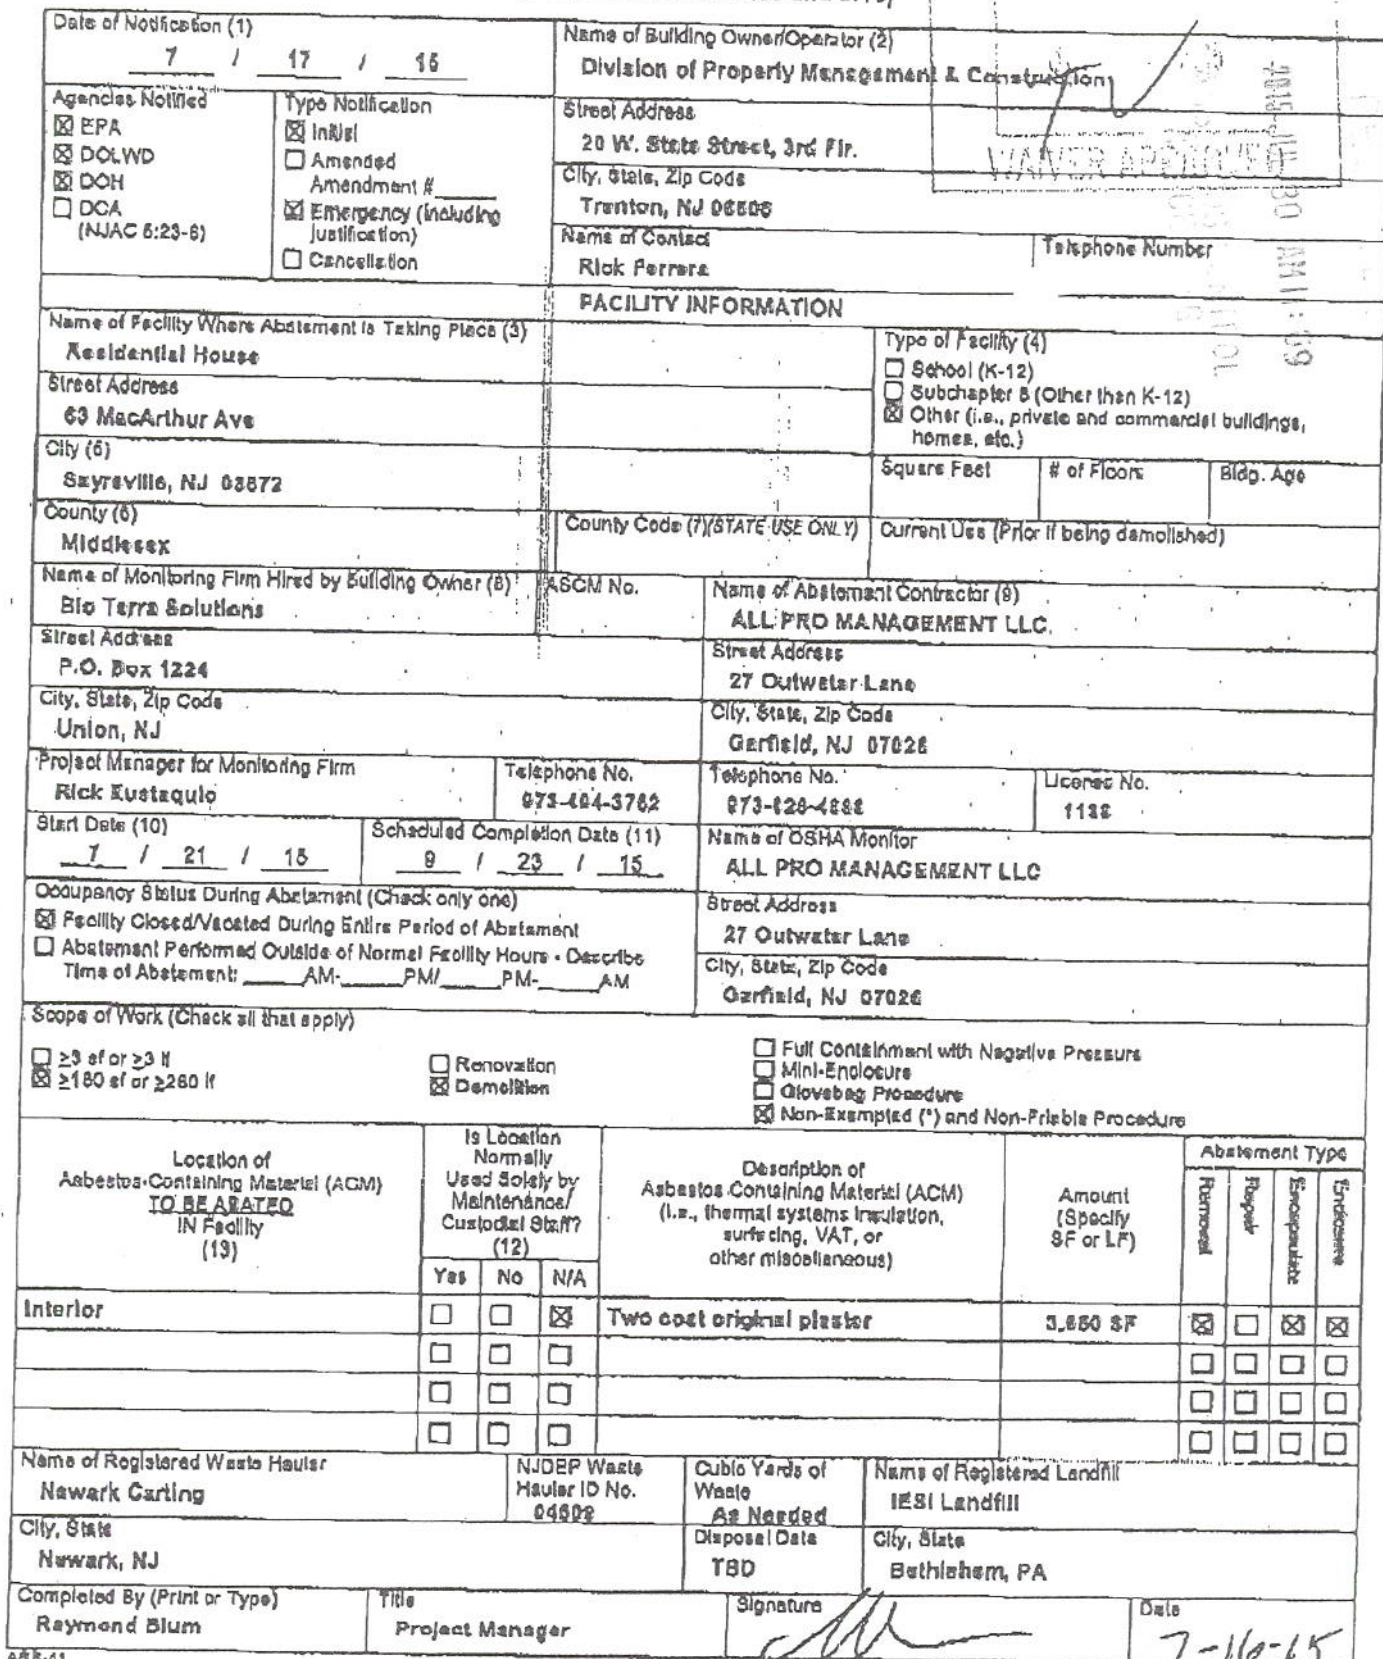 Date of Notification (1)
7 / 17 / 15
Name of Building Owner/Operator (2)
Division of Property Management & Construction
Agencies Notified
☒ EPA
☒ DOLWD
☒ DOH
☐ DCA
(NJAC 5:23-8)
Type Notification
☒ Initial
☐ Amended
Amendment #
☒ Emergency (including
justification)
☐ Cancellation
Street Address
20 W. State Street, 3rd Flr.
City, State, Zip Code
Trenton, NJ
WAIVER APPROVED
Name of Contact
Rick Ferrera
Telephone Number
FACILITY INFORMATION
Name of Facility Where Abatement is Taking Place (3)
Residential House
Type of Facility (4)
☐ School (K-12)
☐ Subchapter 8 (Other than K-12)
☒ Other (i.e., private and commercial buildings,
homes, etc.)
Street Address
63 MacArthur Ave
City (5)
Sayreville, NJ 08872
Square Feet
# of Floors
Bldg. Age
County (6)
Middlesex
County Code (7)(STATE USE ONLY)
Current Use (Prior if being demolished)
Name of Monitoring Firm Hired by Building Owner (8)
Bio Terra Solutions
ASCM No.
Name of Abatement Contractor (9)
ALL PRO MANAGEMENT LLC
Street Address
P.O. Box 1224
Street Address
27 Outwater Lane
City, State, Zip Code
Union, NJ
City, State, Zip Code
Garfield, NJ 07026
Project Manager for Monitoring Firm
Rick Eustaquio
Telephone No.
Telephone No.
License No.
Start Date (10)
7 / 21 / 15
Scheduled Completion Date (11)
9 / 23 / 15
Name of OSHA Monitor
ALL PRO MANAGEMENT LLC
Occupancy Status During Abatement (Check only one)
☒ Facility Closed/Vacated During Entire Period of Abatement
☐ Abatement Performed Outside of Normal Facility Hours - Describe
Time of Abatement: AM- PM/ PM- AM
Street Address
27 Outwater Lane
City, State, Zip Code
Garfield, NJ 07026
Scope of Work (Check all that apply)
☐ ≥3 sf or ≥3 lf
☒ ≥160 sf or ≥260 lf
☐ Renovation
☒ Demolition
☐ Full Containment with Negative Pressure
☐ Mini-Enclosure
☐ Glovebag Procedure
☒ Non-Exempted (*) and Non-Friable Procedure
Location of
Asbestos-Containing Material (ACM)
TO BE ABATED
IN Facility
(13)
Is Location
Normally
Used Solely by
Maintenance/
Custodial Staff?
(12)
Yes No N/A
Description of
Asbestos Containing Material (ACM)
(i.e., thermal systems insulation,
surfacing, VAT, or
other miscellaneous)
Amount
(Specify
SF or LF)
Abatement Type
Removal
Repair
Encapsulate
Enclosure
Interior ☐ ☐ ☒ Two coat original plaster 3,650 SF ☒ ☐ ☒ ☒
☐ ☐ ☐ ☐ ☐ ☐ ☐
☐ ☐ ☐ ☐ ☐ ☐ ☐
☐ ☐ ☐ ☐ ☐ ☐ ☐
Name of Registered Waste Hauler
Newark Carting
NJDEP Waste
Hauler ID No.
04509
Cubic Yards of
Waste
As Needed
Name of Registered Landfill
IESI Landfill
City, State
Newark, NJ
Disposal Date
TBD
City, State
Bethlehem, PA
Completed By (Print or Type)
Raymond Blum
Title
Project Manager
Signature
Date
7-16-15